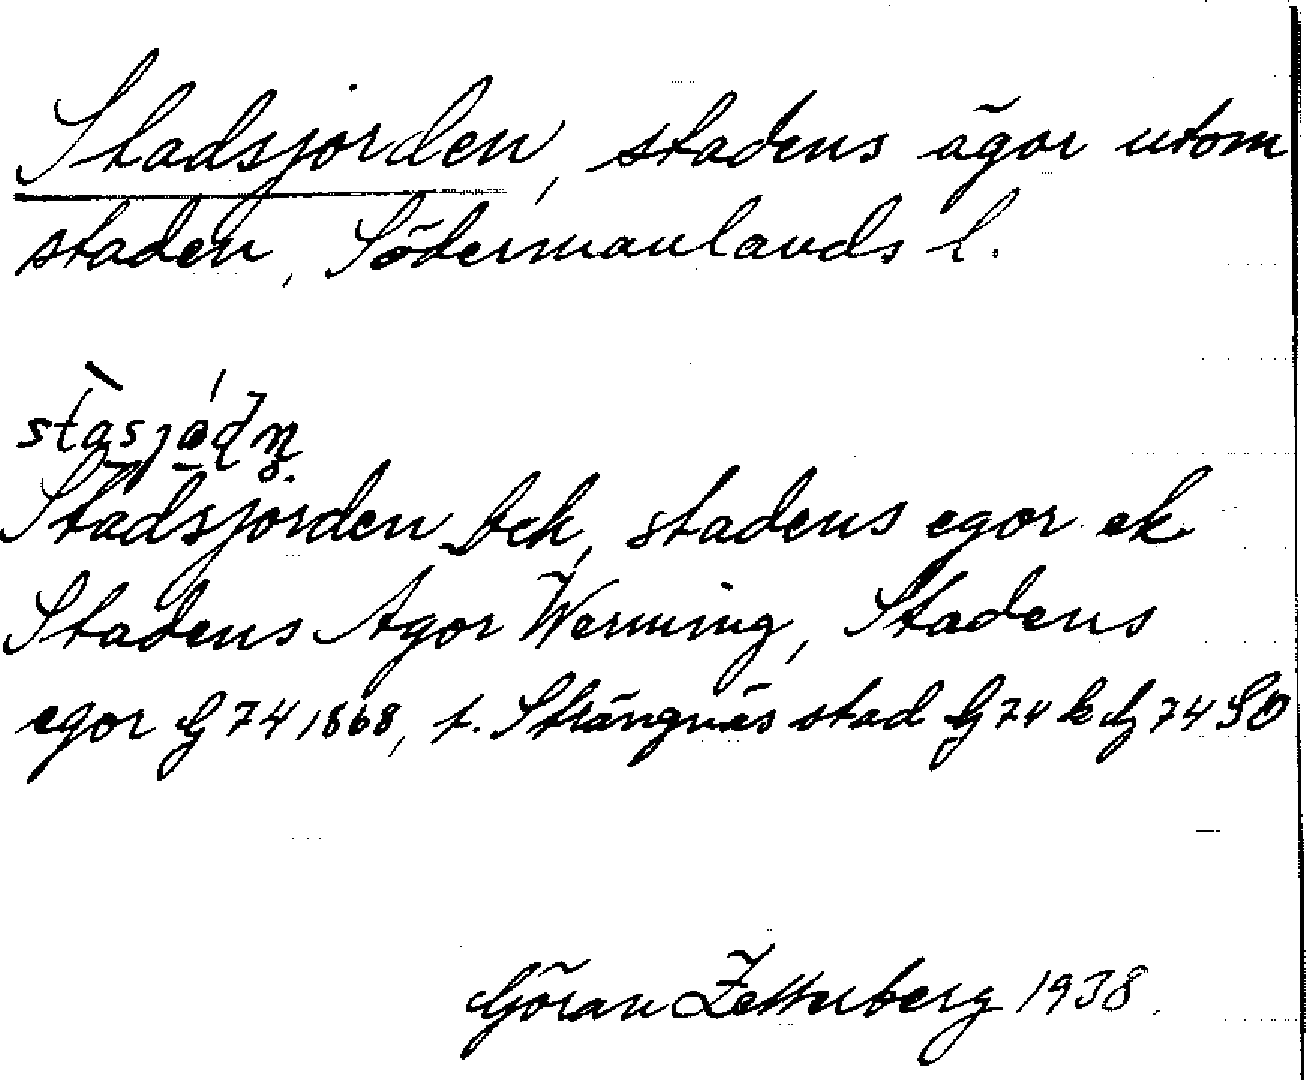 Stadsjorden, stadens ägor utom
staden, Södermanlands l.
Stadsjorden Dek, stadens egor ek
Stadens Ägor Werming, Stadens
egor G74 1868, t. Strängnäs stad G74 k G74 SO
Göran Zetterberg 1938.